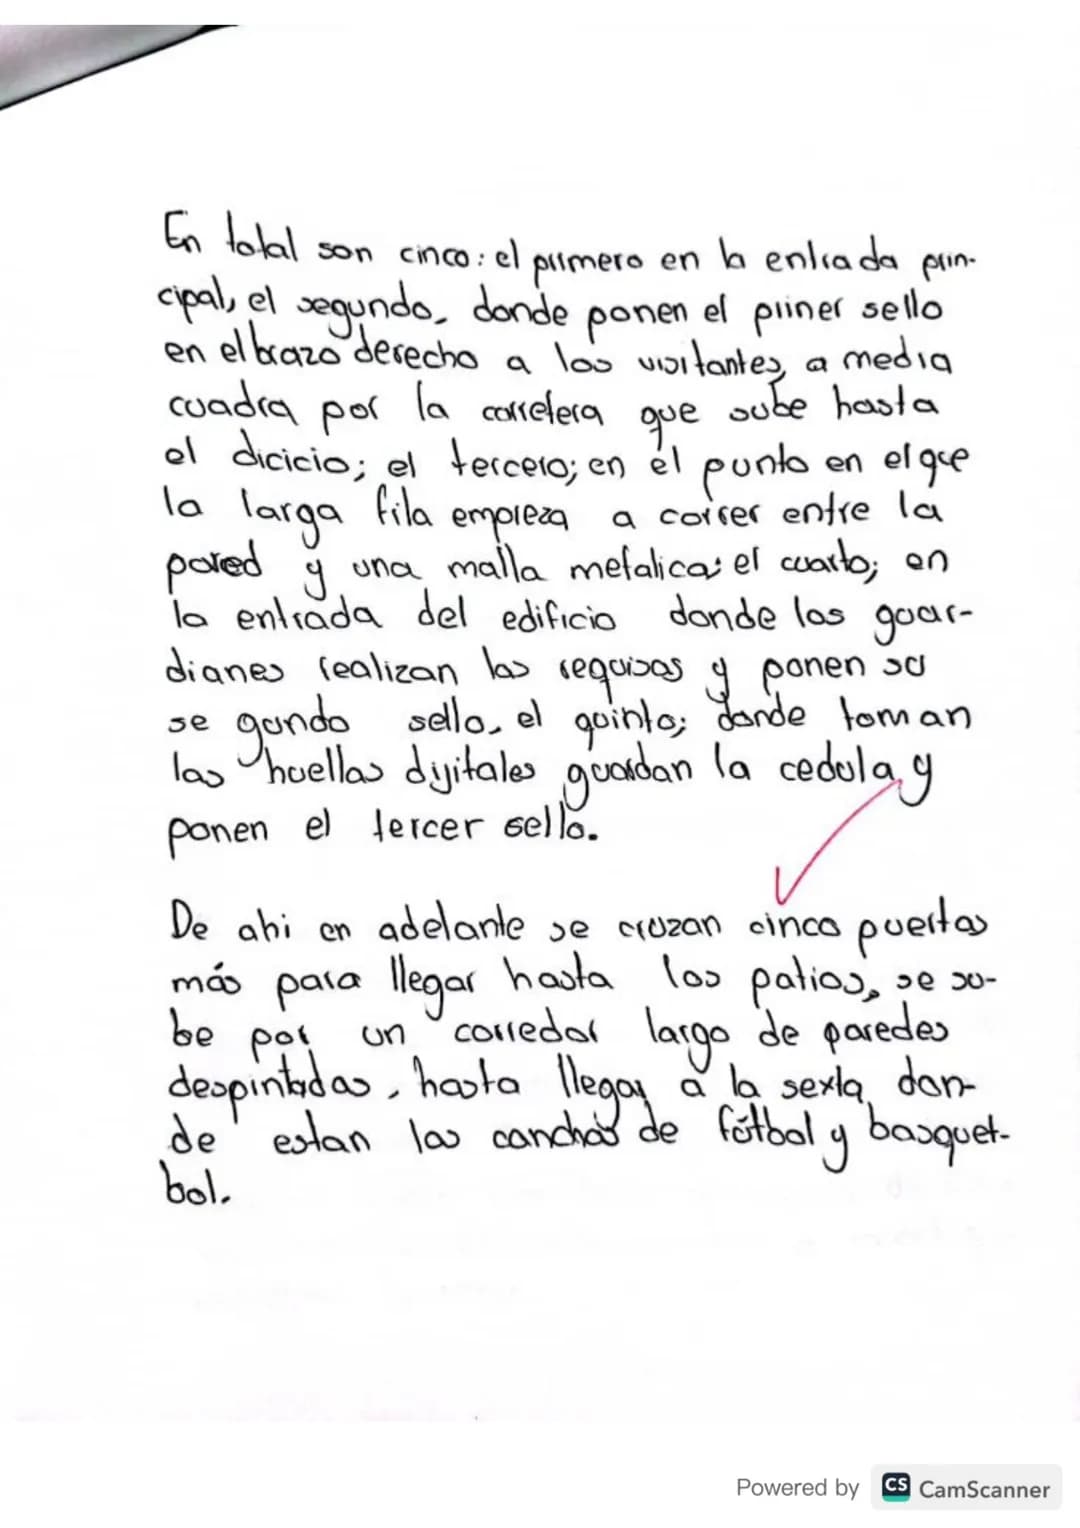 En total son cinco: el primero en la entrada prin-
cipal, el segundo, donde ponen el priiner sello
en el brazo derecho a los visitantes, a media
cuadra por la carretera que sube hasta
el dicicio; el tercero; en el punto en el que
la larga fila empieza a correr entre la
pared y una malla metalica: el cuarto; en
la entrada del edificio donde los guar-
dianes realizan las requisas y ponen su
se gundo sello, el quinto; donde toman
las huellas dijitales guardan la cedula y
ponen el tercer sello.
De ahi en adelante se cruzan cinco puertas
más para llegar hasta los patios, se su-
be por un corredor largo de paredes
despintadas, hasta llegar a la sexta, don-
de estan las canchas de fútbol y basquet-
bol.
Powered by CS CamScanner